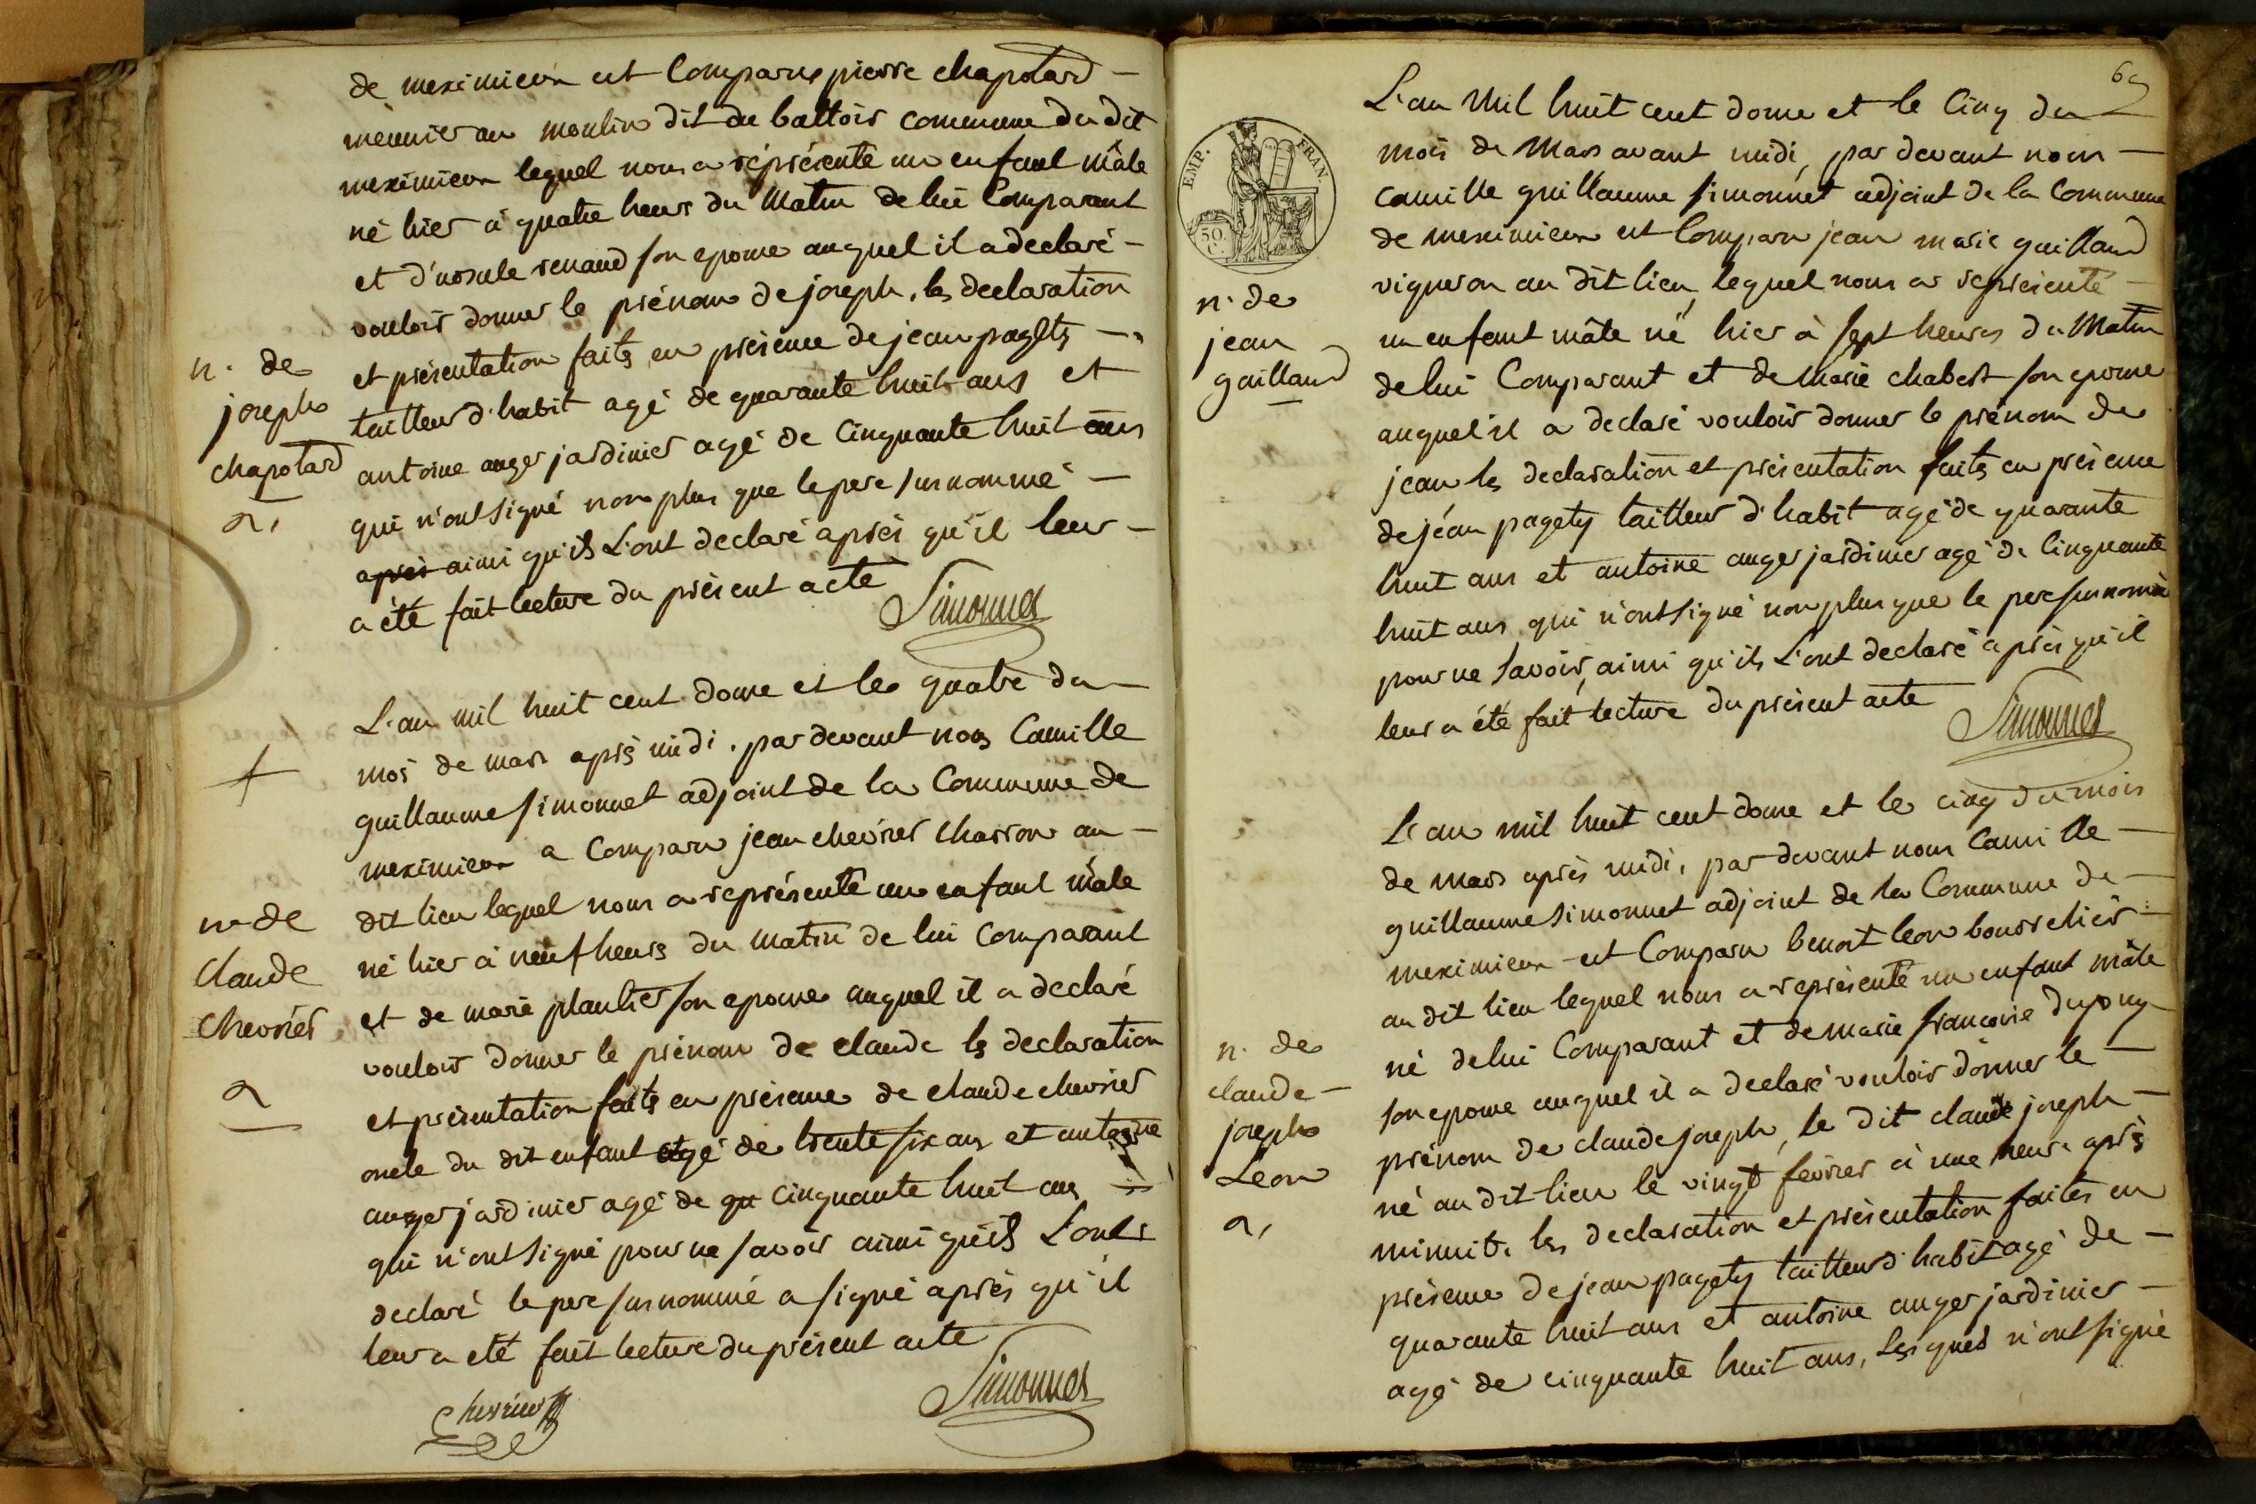 de meximieux est Comparu pierre chapotard
meunier au moulin dit du battoir commune du dit
meximieux lequel nous a réprésenté un enfant mâle
né hier à quatre heurs du Matin de lui Comparant
et d'ursule renaud son epouse auquel il a declaré
vouloir donner le prénom de joseph. les declaration
et présentation faits en présence de jean pagety
n. de
joseph
chapotard
tailleur d'habit agé de quarante huit ans et
antoine anger jardinier agé de Cinquante huit ans
qui n'ont signé non plus que le pere surnommé
après ainsi qu'ils L'ont declaré après qu'il leur
a été fait lecture du présent acte
Simonnet
L'an mil huit cent douze et le quatre du
mois de mars après midi. par devant nous Camille
guillaume simonnet adjoint de la Commune de
meximieux a Comparu jean chevrier charron au
n. de
Claude
Chevrier
dit lieu lequel nous a représenté un enfant mâle
né hier à neuf heurs du matin de lui Comparant
et de marie plantier son epouse auquel il a declaré
vouloir donner le prénom de claude ls declaration
et présentation faits en présence de claude chevrier
oncle du dit enfant agé de trente six ans et antoine
anger jardinier agé de qu cinquante huit ans
qui n'ont signé pour ne savoir ainsi qu'ils L'ont
declaré le pere surnommé a signé après qu'il
leur a été fait lecture du présent acte
Chevrier
Simonnet
69
EMP. FRAN.
50
C.
L'an Mil huit cent douze et le Cinq du
mois de Mars avant midi, par devant nous
camille guillaume simonnet adjoint de la Commune
de meximieux est Comparu jean marie gaillard
n. de
jean
gaillard
vigneron au dit lieu, lequel nous a représenté
un enfant mâle né hier à sept heures du Matin
de lui Comparant et de Marie chabert son epouse
auquel il a declaré vouloir donner le prénom de
jean ls declaration et présentation faits en présence
de jéan pagety tailleur d'habit agé de quarante
huit ans et antoine anger jardinier agé de Cinquante
huit ans qui n'ont signé non plus que le pere surnommé
pour ne savoir, ainsi qu'ils L'ont declaré après qu'il
leur a été fait lecture du présent acte
Simonnet
L'an mil huit cent douze et le cinq du mois
de mars après midi, par devant nous Camille
guillaume simonnet adjoint de la Commune de
meximieux est Comparu benoit leon bourrelier
au dit lieu lequel nous a représenté un enfant mâle
né de lui Comparant et de marie francoise dupuy
n. de
claude
joseph
Leon
son epouse auquel il a declaré vouloir donner le
prénom de claude joseph, le dit claude joseph
né au dit lieu le vingt fevrier à une heure après
minuit. les declaration et présentation faites en
présence de jean pagety tailleur d'habit agé de
quarante huit ans et antoine anger jardinier
agé de cinquante huit ans, Lesquels n'ont signé